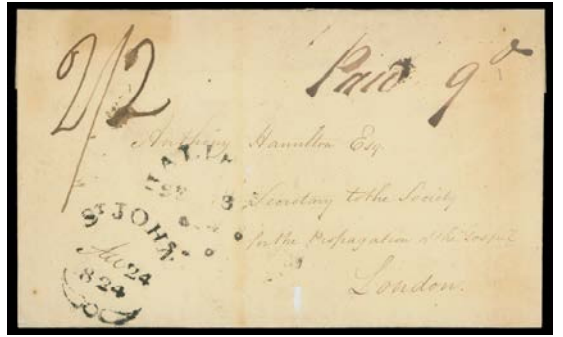 2/2
Paid 9d
Anthony Hamilton Esq
Secretary to the Society
for the Propagation of the Gospel
London.
St JOHN
24
824